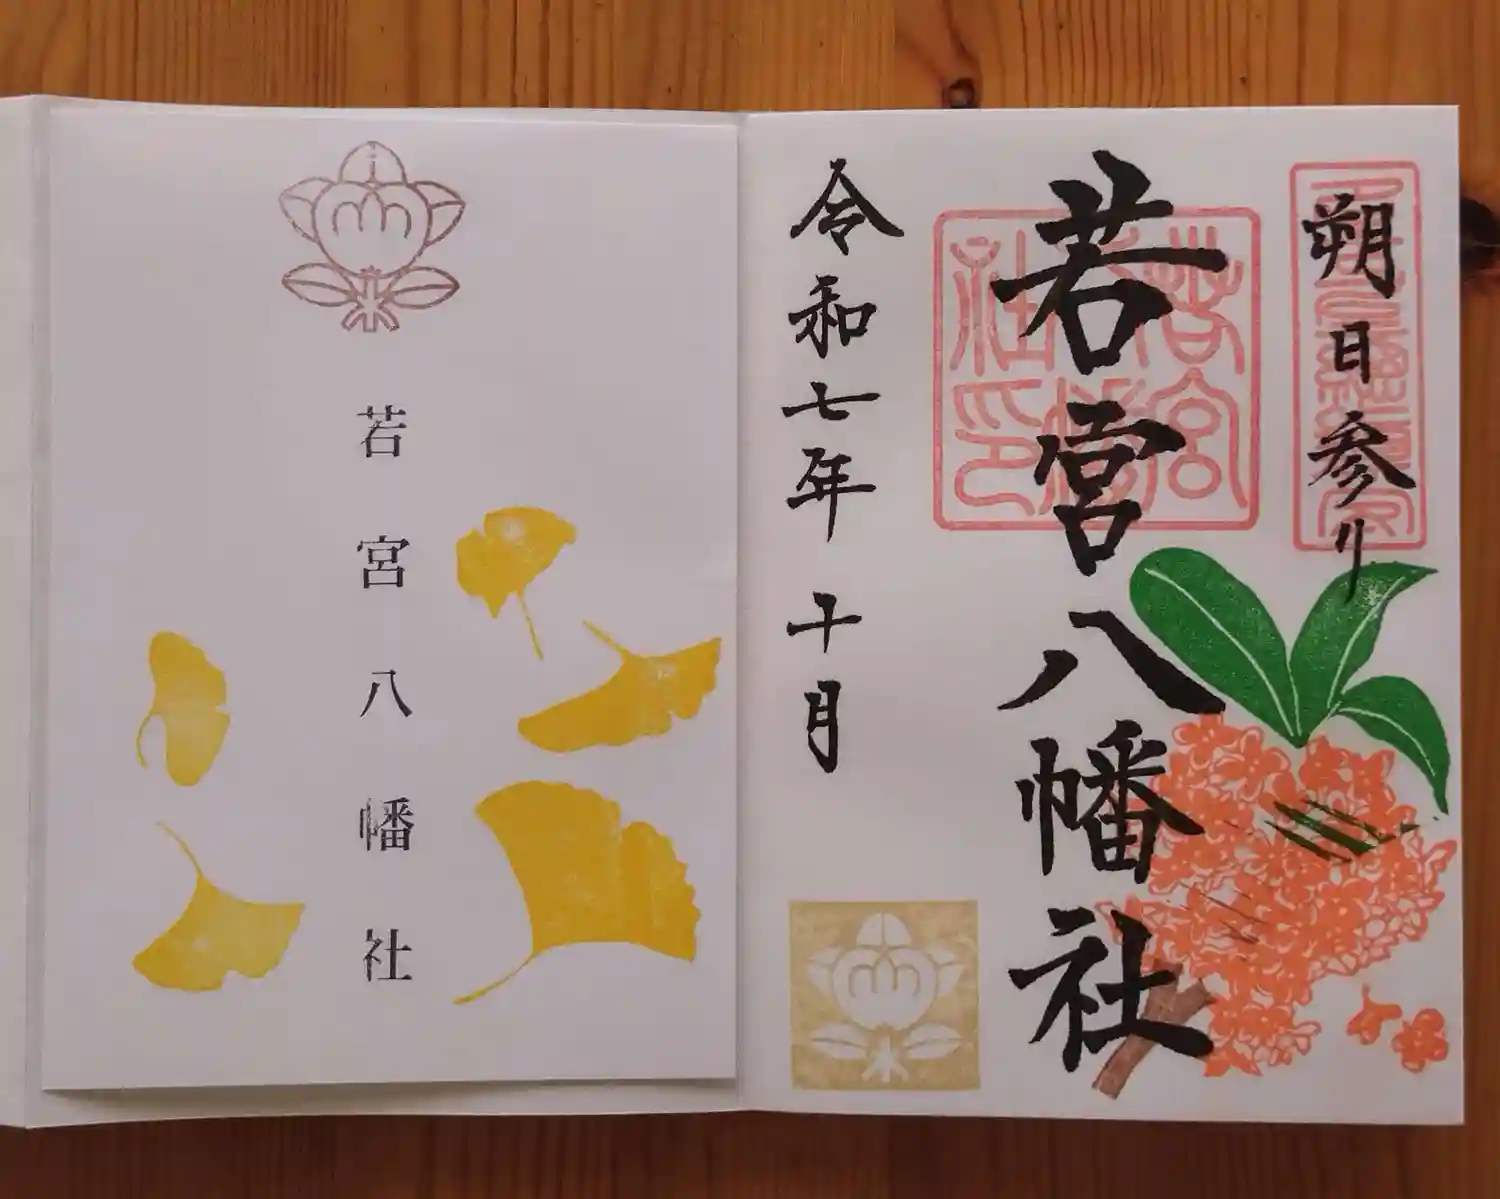 朔日参り
若宮八幡社
令和七年 十月
若宮八幡社